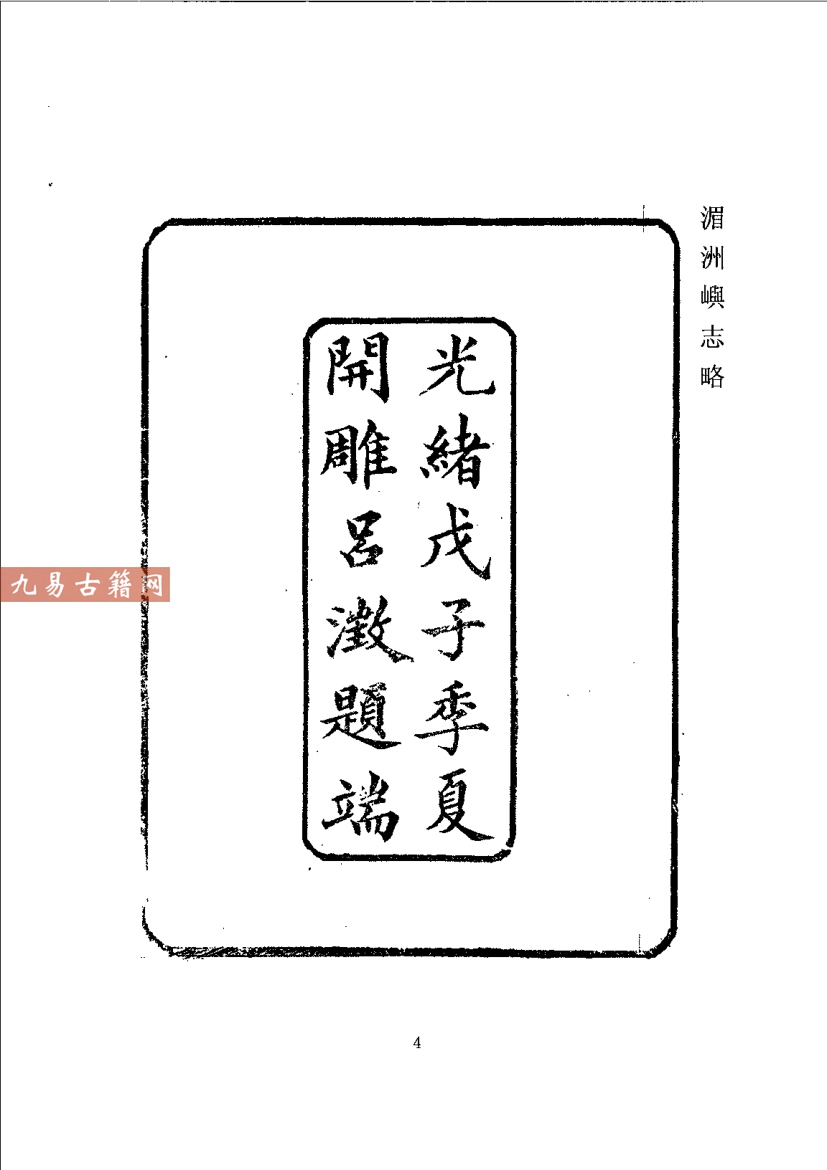 湄洲嶼志略
光緒戊子季夏
開雕呂澂題端
九易古籍网
4